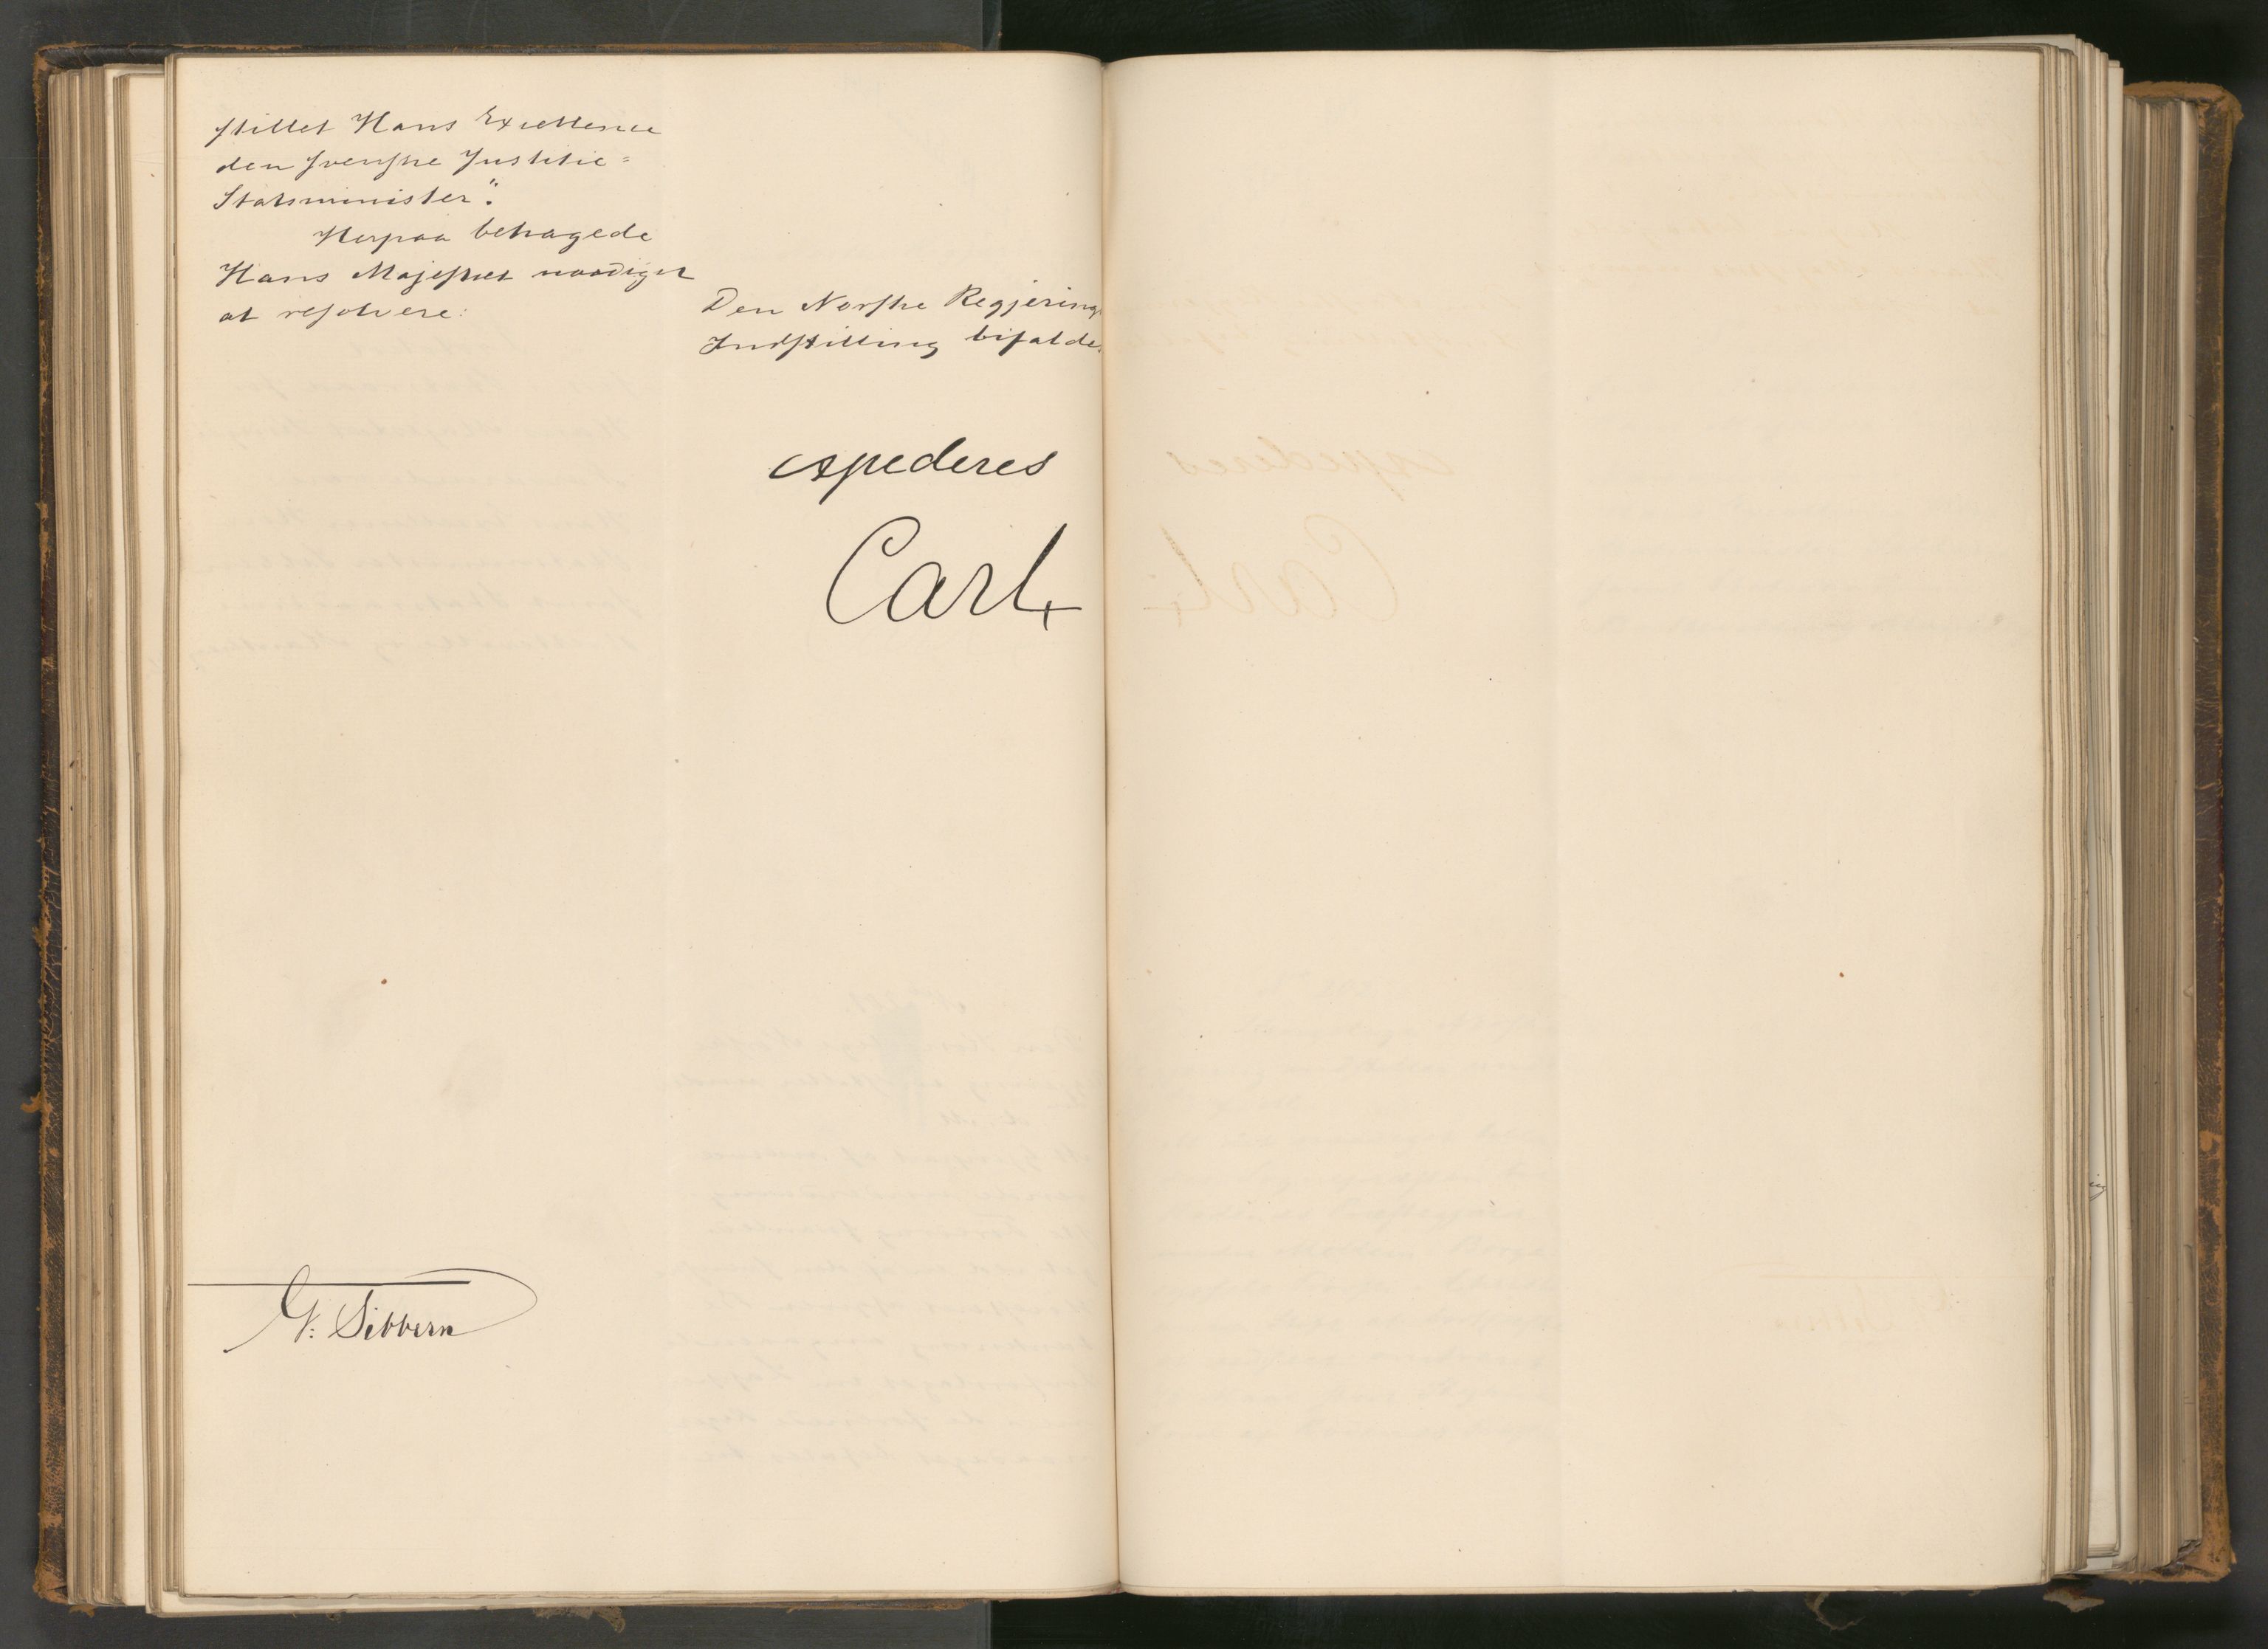 stillet Hans Excellence
den svenske Justitie=
Statsminister".
Herpaa behagede
Hans Majestæt naadigst
at resolvere:
Den Norske Regjerings
Indstilling bifaldes
expederes
Carl
G. Sibbern